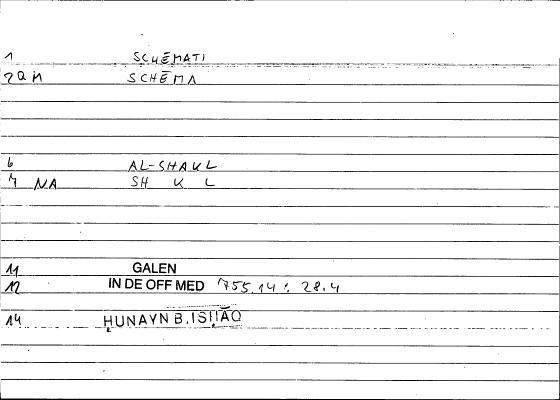 1 SCHĒMATI
2 QM SCHĒMA
6 AL-SHAKL
7 NA SH K L
11 GALEN
12 IN DE OFF MED 755.14 : 28.4
14 ḤUNAYN B. ISḤĀQ